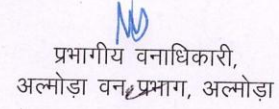 प्रभागीय वनाधिकारी,
अल्मोड़ा वन प्रभाग, अल्मोड़ा